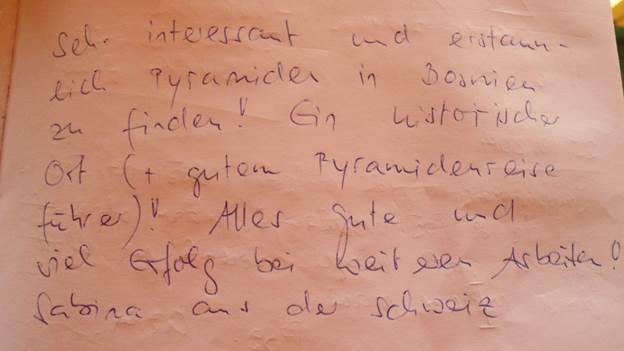 Sehr interessant und erstaun-
lich Pyramiden in Bosnien
zu finden! Ein historischer
Ort (+ gutem Pyramidenreise
führer)! Alles gute und
viel Erfolg bei weiteren Arbeiten!
Sabina aus der Schweiz